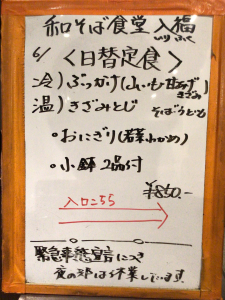 和そば食堂 入福
いり ふく
6/ <日替定食>
冷) ぶっかけ(山いも 甘あげ
きざみ)
温) きざみとじ そばうどん
・おにぎり(若菜ふかめ)
・小鉢 2品付
¥850.-
入口こちら
緊急事態宣言につき
夜の部は休業しています